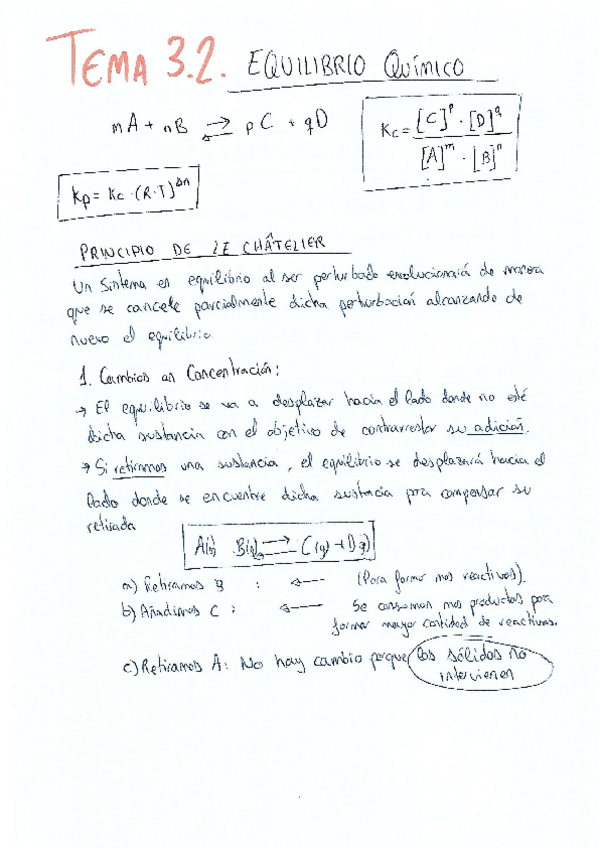 TEMA 3.2. EQUILIBRIO QUÍMICO
mA + nB ⇄ pC + qD
Kc = [C]^p · [D]^q / [A]^m · [B]^n
Kp = Kc · (R·T)^Δn
PRINCIPIO DE LE CHÂTELIER
Un Sistema en equilibrio al ser perturbado evolucionará de manera
que se cancele parcialmente dicha perturbación alcanzando de
nuevo el equilibrio.
1. Cambios en Concentración:
→ El equilibrio se va a desplazar hacia el lado donde no esté
dicha sustancia con el objetivo de contrarrestar su adición.
→ Si retiramos una sustancia, el equilibrio se desplazará hacia el
lado donde se encuentre dicha sustacia para compensar su
retirada
A(s) B(g) ⇄ C(g) + D(g)
a) Retiramos B : ← (Para formar mas reactivos).
b) Añadimos C : ← Se consumen mas productos para
formar mayor cantidad de reactivos.
c) Retiramos A: No hay cambio porque los sólidos no
intervienen